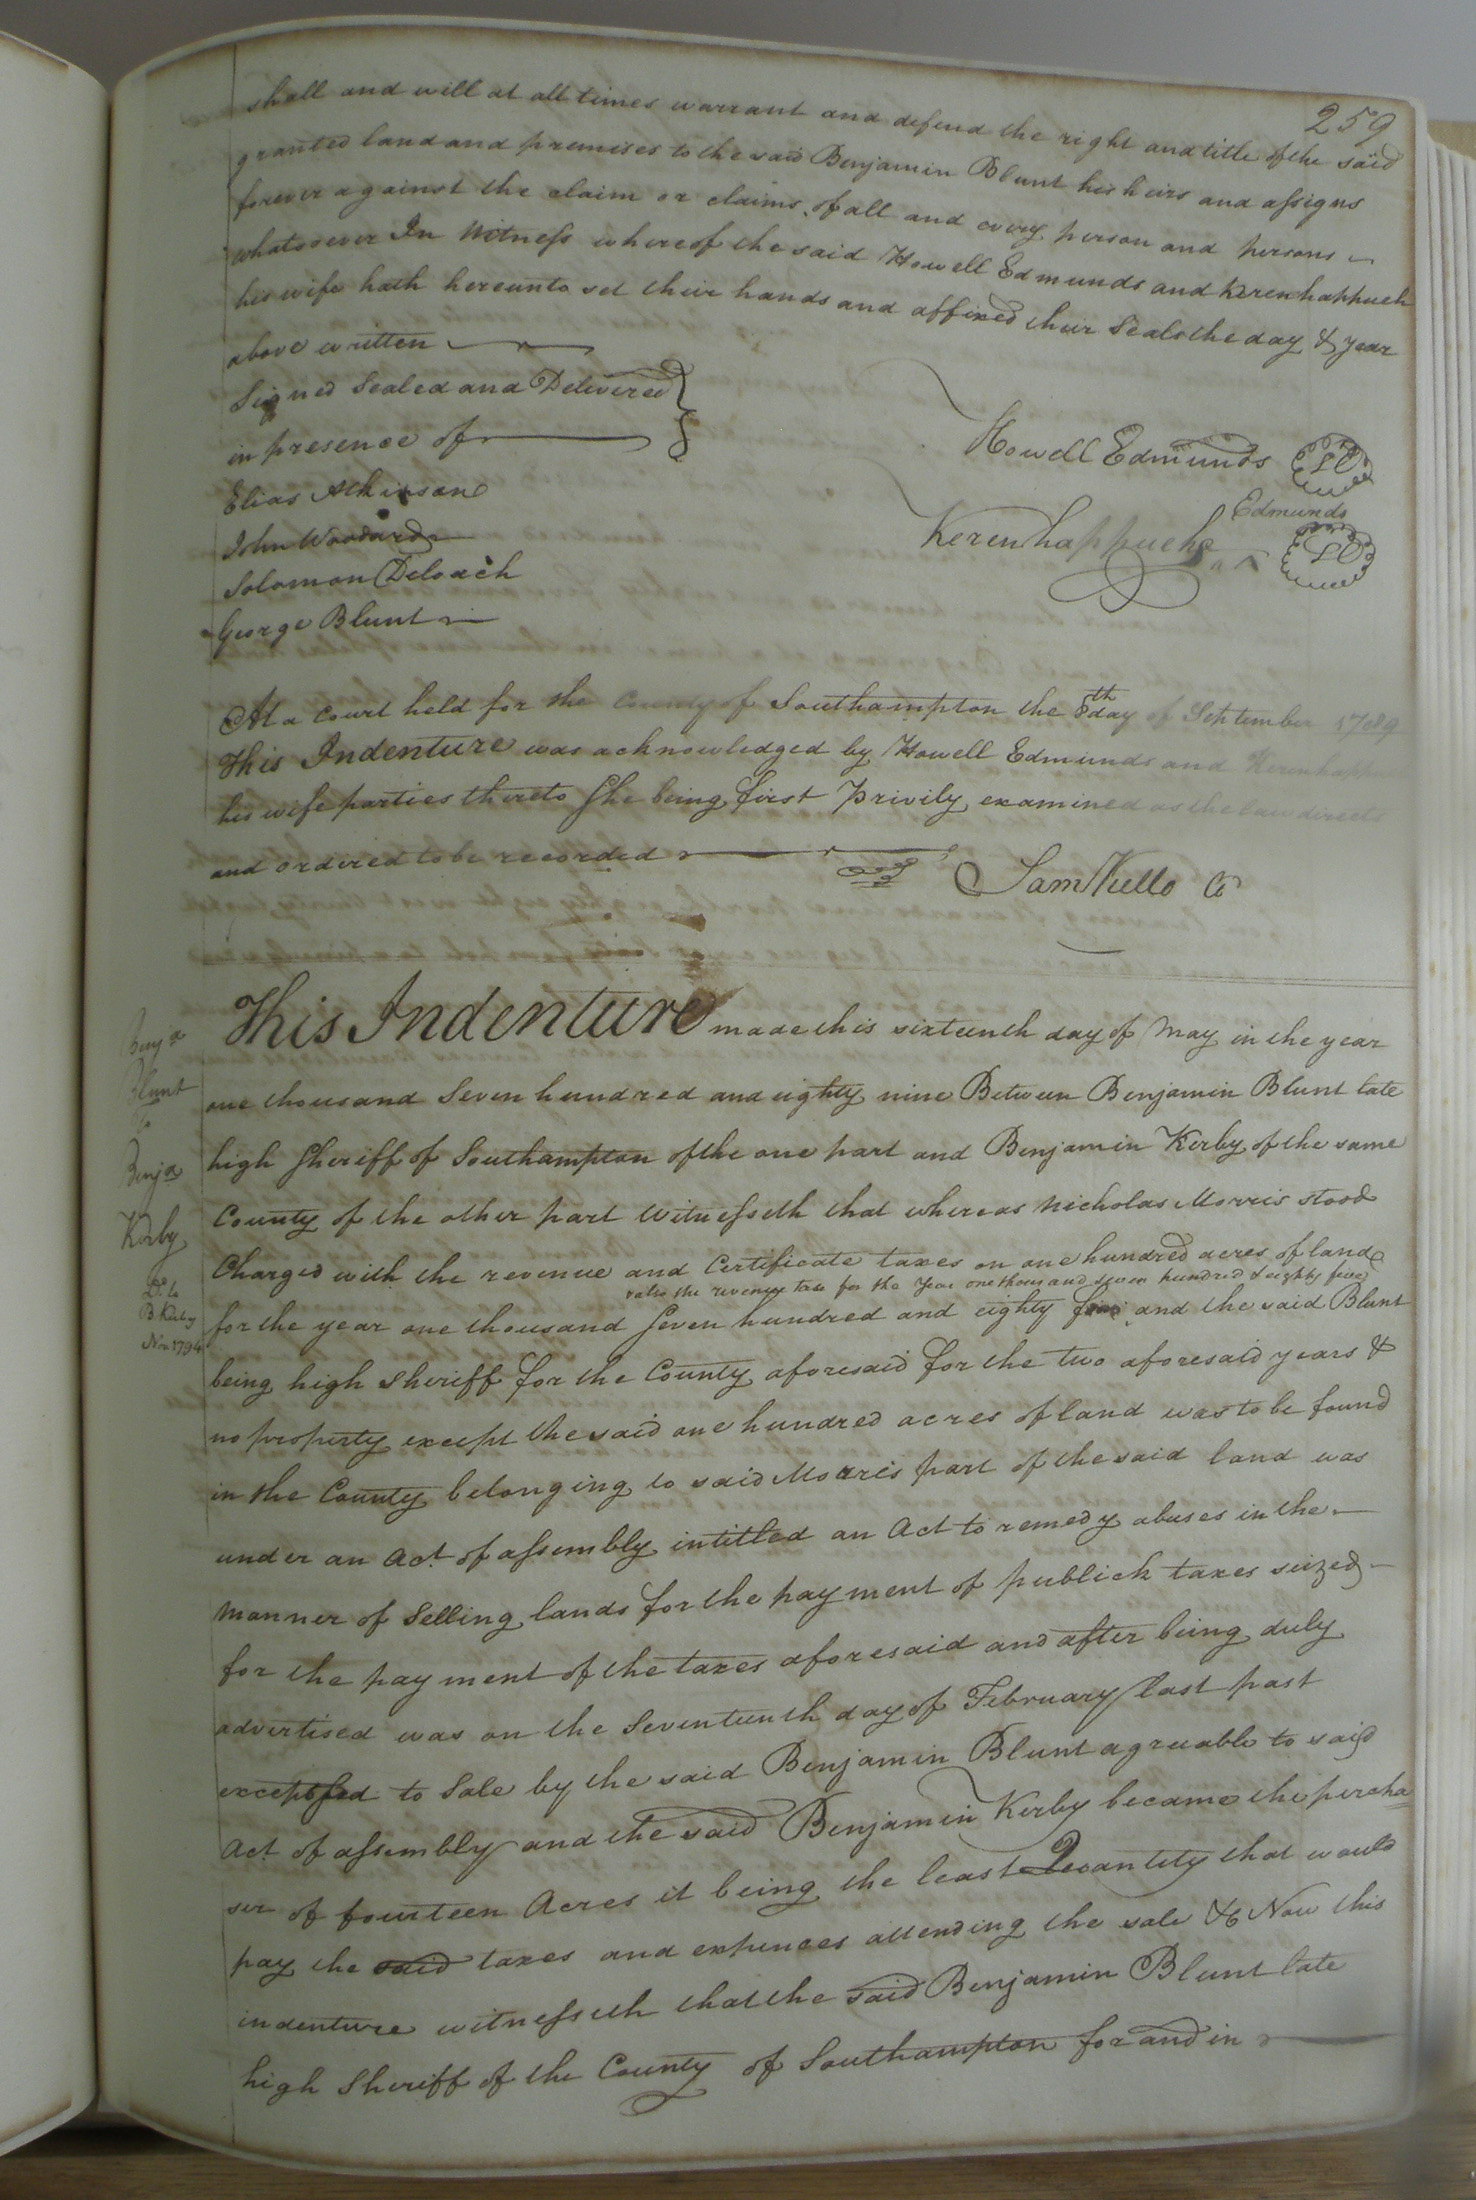 259
shall and will at all times warrant and defend the right and title of the said
granted land and premises to the said Benjamin Blunt his heirs and assigns
forever against the claim or claims of all and every person and persons
whatsoever In Witness whereof the said Howell Edmunds and Kerenhappuch
his wife hath hereunto set their hands and affixed their Seals the day & year
above written
Signed Sealed and Delivered
in presence of
Elias Atkinson
John Woodard
Solomon Deloach
George Blunt
Howell Edmunds LS
Edmunds
Kerenhappuch ^ LS
At a Court held for the County of Southampton the 8th day of September 1789
This Indenture was acknowledged by Howell Edmunds and Kerenhappu
his wife parties thereto She being first Privily examined as the law directs
and ordered to be recorded
Sam Kello Cl
This Indenture made this sixteenth day of May in the year
one thousand Seven hundred and eighty nine Between Benjamin Blunt late
high Sheriff of Southampton of the one part and Benjamin Kerby of the same
County of the other part Witnesseth that whereas Nicholas Morris stood
Charged with the revenue and Certificate taxes on one hundred acres of land
the revenue tax for the Year one thousand seven hundred & eighty five
for the year one thousand Seven hundred and eighty four and the said Blunt
being high Sheriff for the County aforesaid for the two aforesaid years &
no property except the said one hundred acres of land was to be found
in the County belonging to said Morris part of the said land was
under an Act of assembly intitled an Act to remedy abuses in the
manner of Selling lands for the payment of publick taxes seized
for the payment of the taxes aforesaid and after being duly
advertised was on the Seventeenth day of February last past
to Sale by the said Benjamin Blunt agreeable to said
Act of assembly and the said Benjamin Kerby became the percha
ser of fourteen Acres it being the least Quantity that would
pay the said taxes and expences attending the sale &c Now this
indenture witnesseth that the said Benjamin Blunt late
high Sheriff of the County of Southampton for and in
Benja
Blunt
to
Benja
Kirby
Dd to
B Kirby
Nov 1794